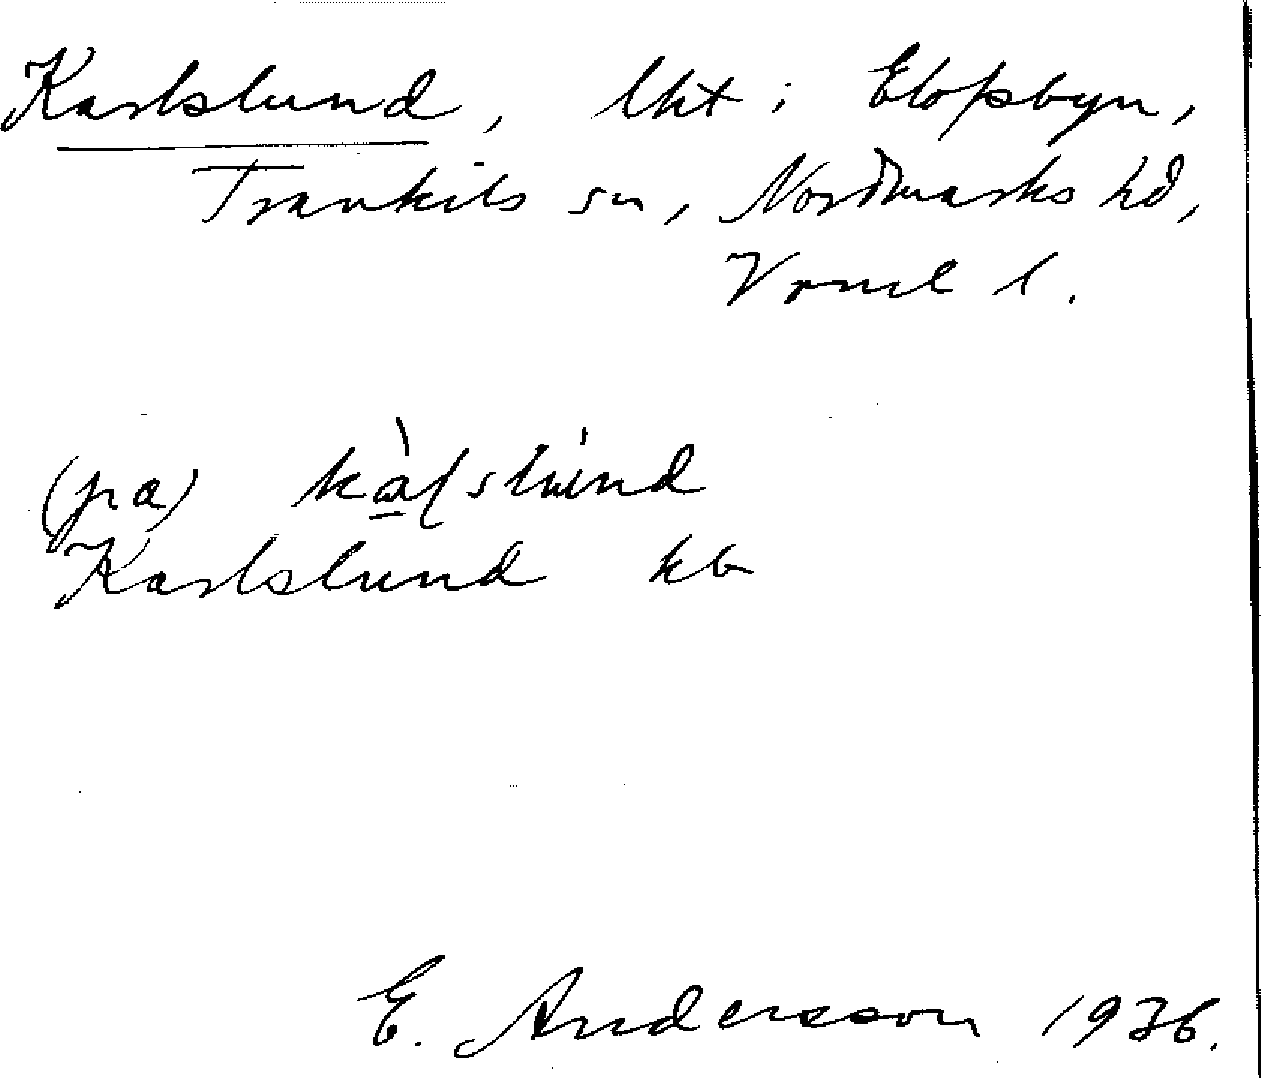 Karlslund, lht i Elofsbyn,
Trankils sn, Nordmarks hd,
Vrml l.
(pa)
Karlslund kb
E. Andersson 1936.